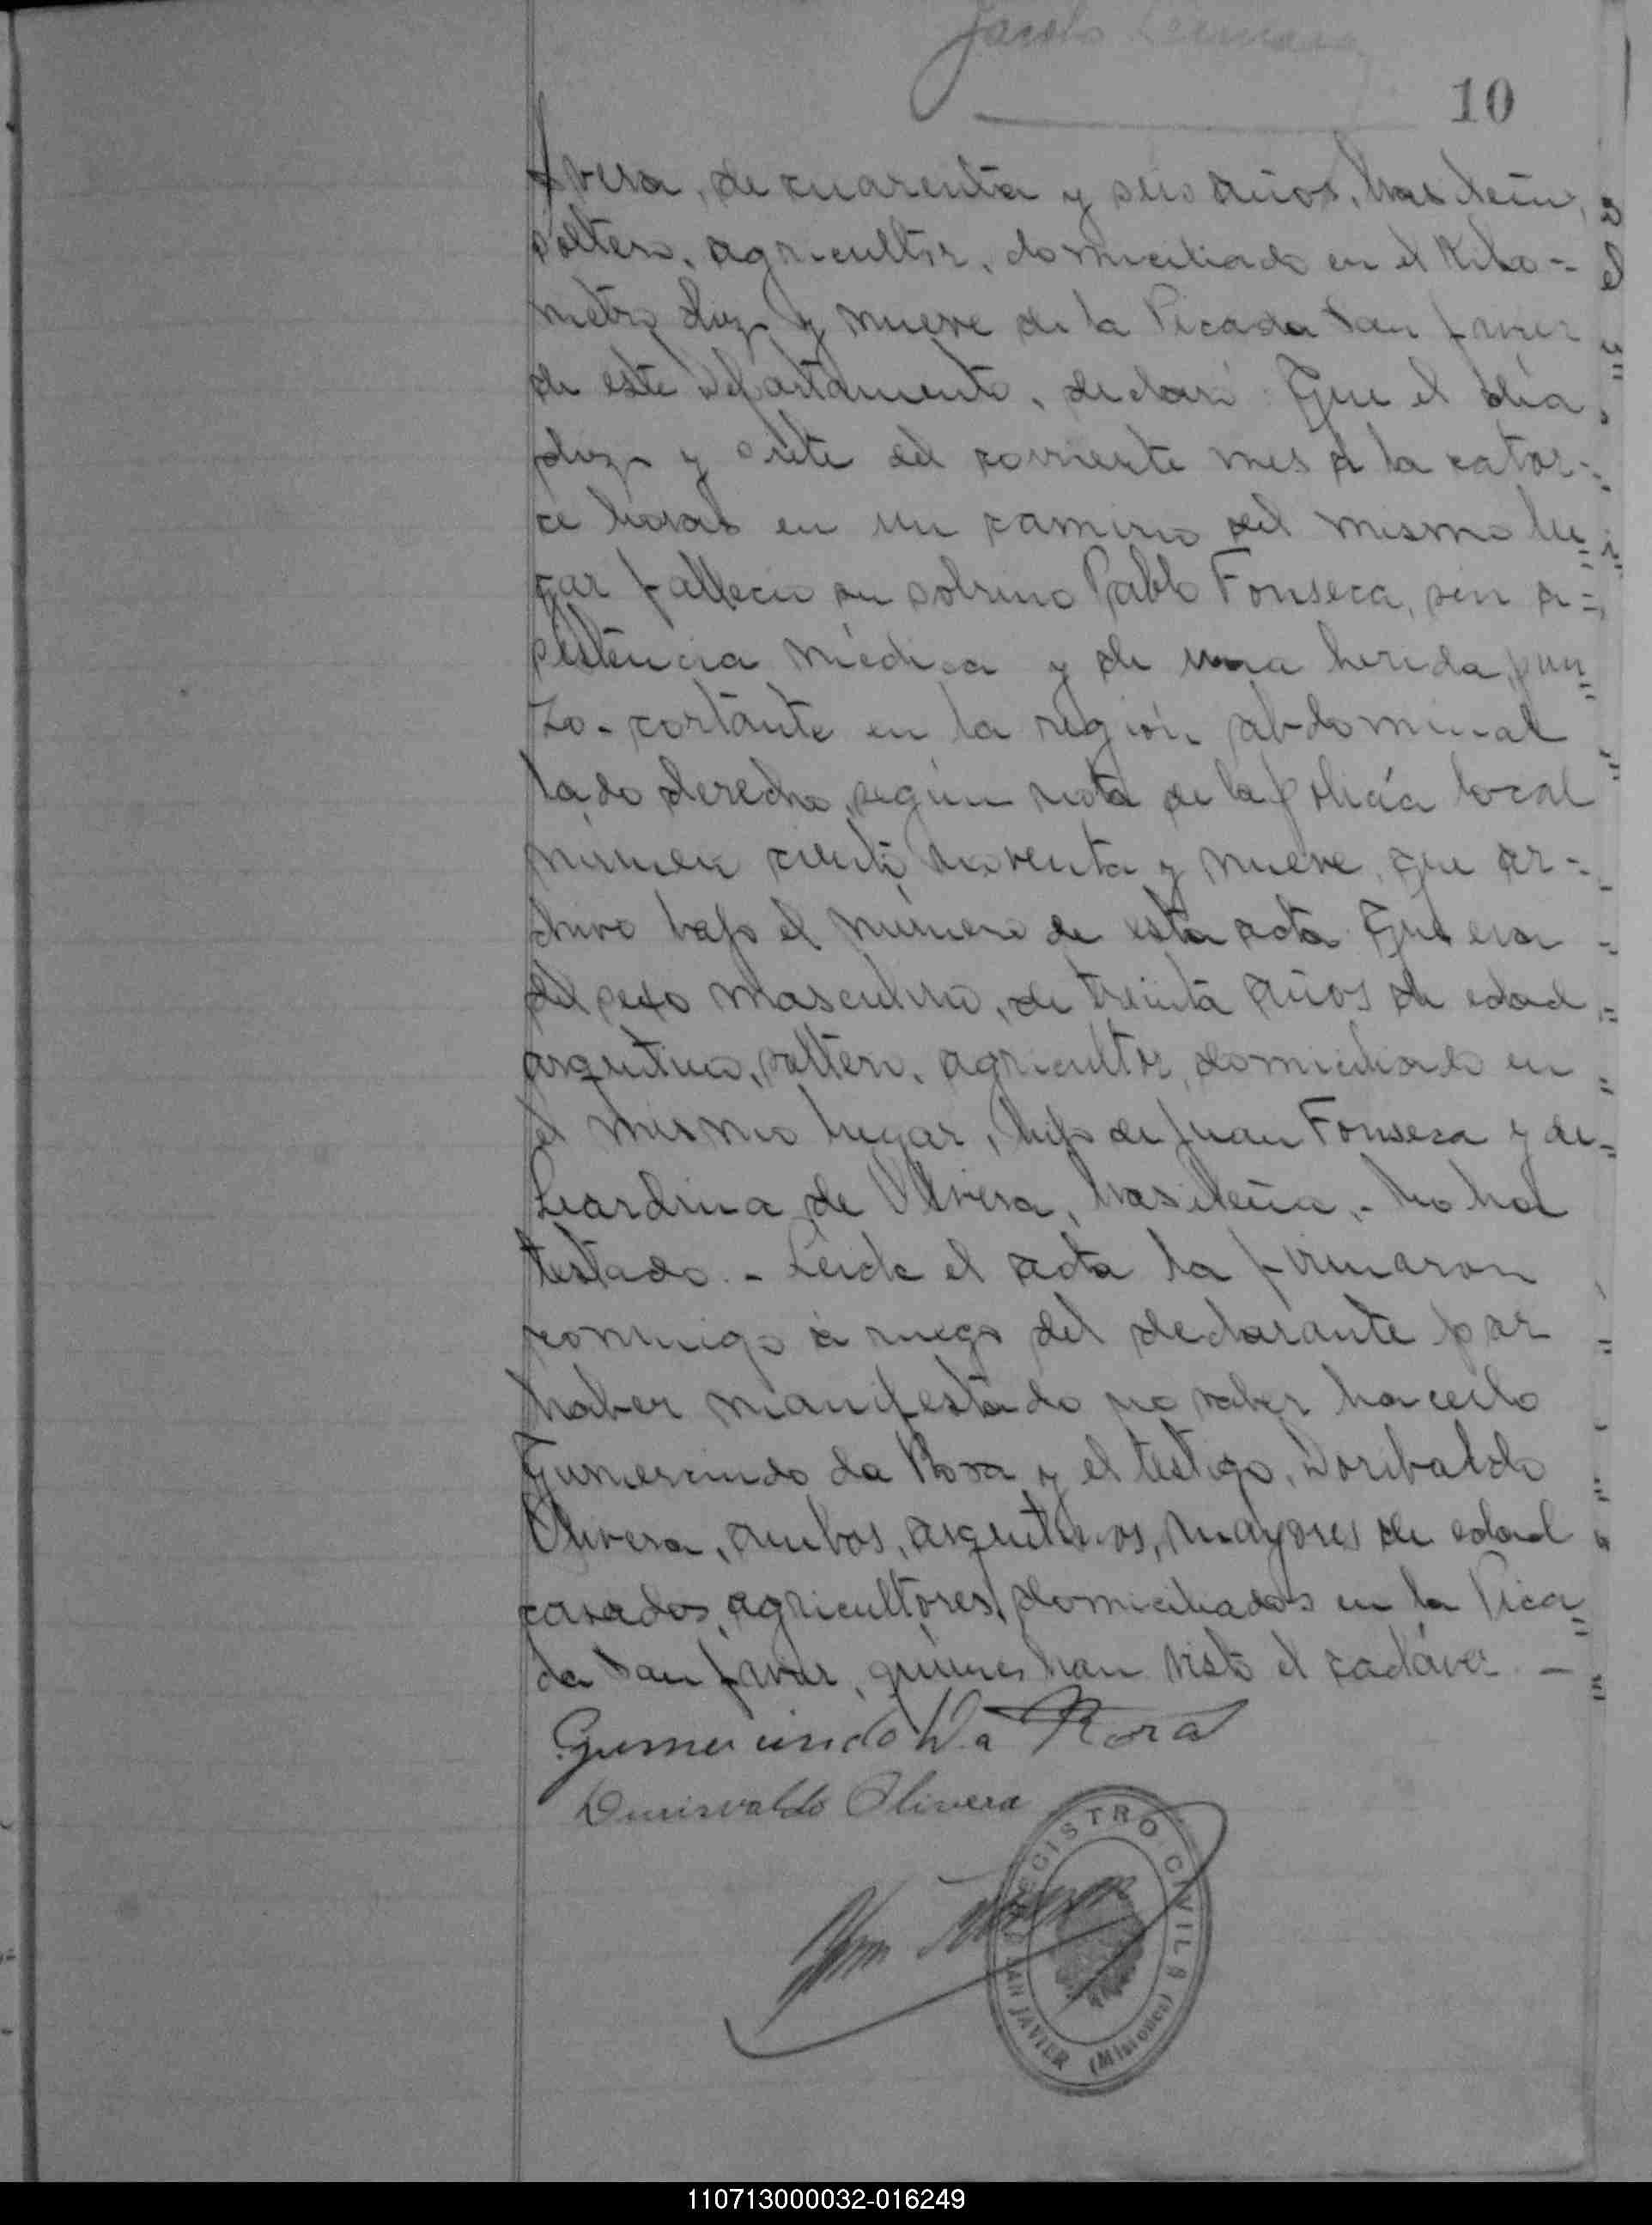 Jacobo
10
vera, de cuarenta y seis años, brasileño,
soltero, agricultor, domiciliado en el Kilo-
metro diez y nueve de la Picada San Javier
de este Departamento, declaró: Que el día
diez y siete del corriente mes a la cator-
ce horas en un camino del mismo lu-
gar falleció su sobrino Pablo Fonseca, sin a-
sistencia médica y de una herida pun
zo-cortante en la región abdominal
lado derecho, según nota de la policía local
número ciento noventa y nueve, que ar-
chivo bajo el número de esta acta. Que era
del sexo masculino, de treinta años de edad
argentino, soltero, agricultor, domiciliado en
el mismo lugar, hijo de Juan Fonseca y de
Leardina de Olivera, brasileña.- No ha
testado.- Leída el acta la firmaron
conmigo á ruego del declarante por
haber manifestado no saber hacerlo
Gumercindo da Rosa y el testigo, Doribaldo
Olivera, ambos, argentinos, mayores de edad
casados, agricultores, domiciliados en la Pica
da San Javier, quienes han visto el cadáver.-
Gumercindo Da Rosa
Olivera
REGISTRO CIVIL
SAN JAVIER (Misiones)
110713000032-016249